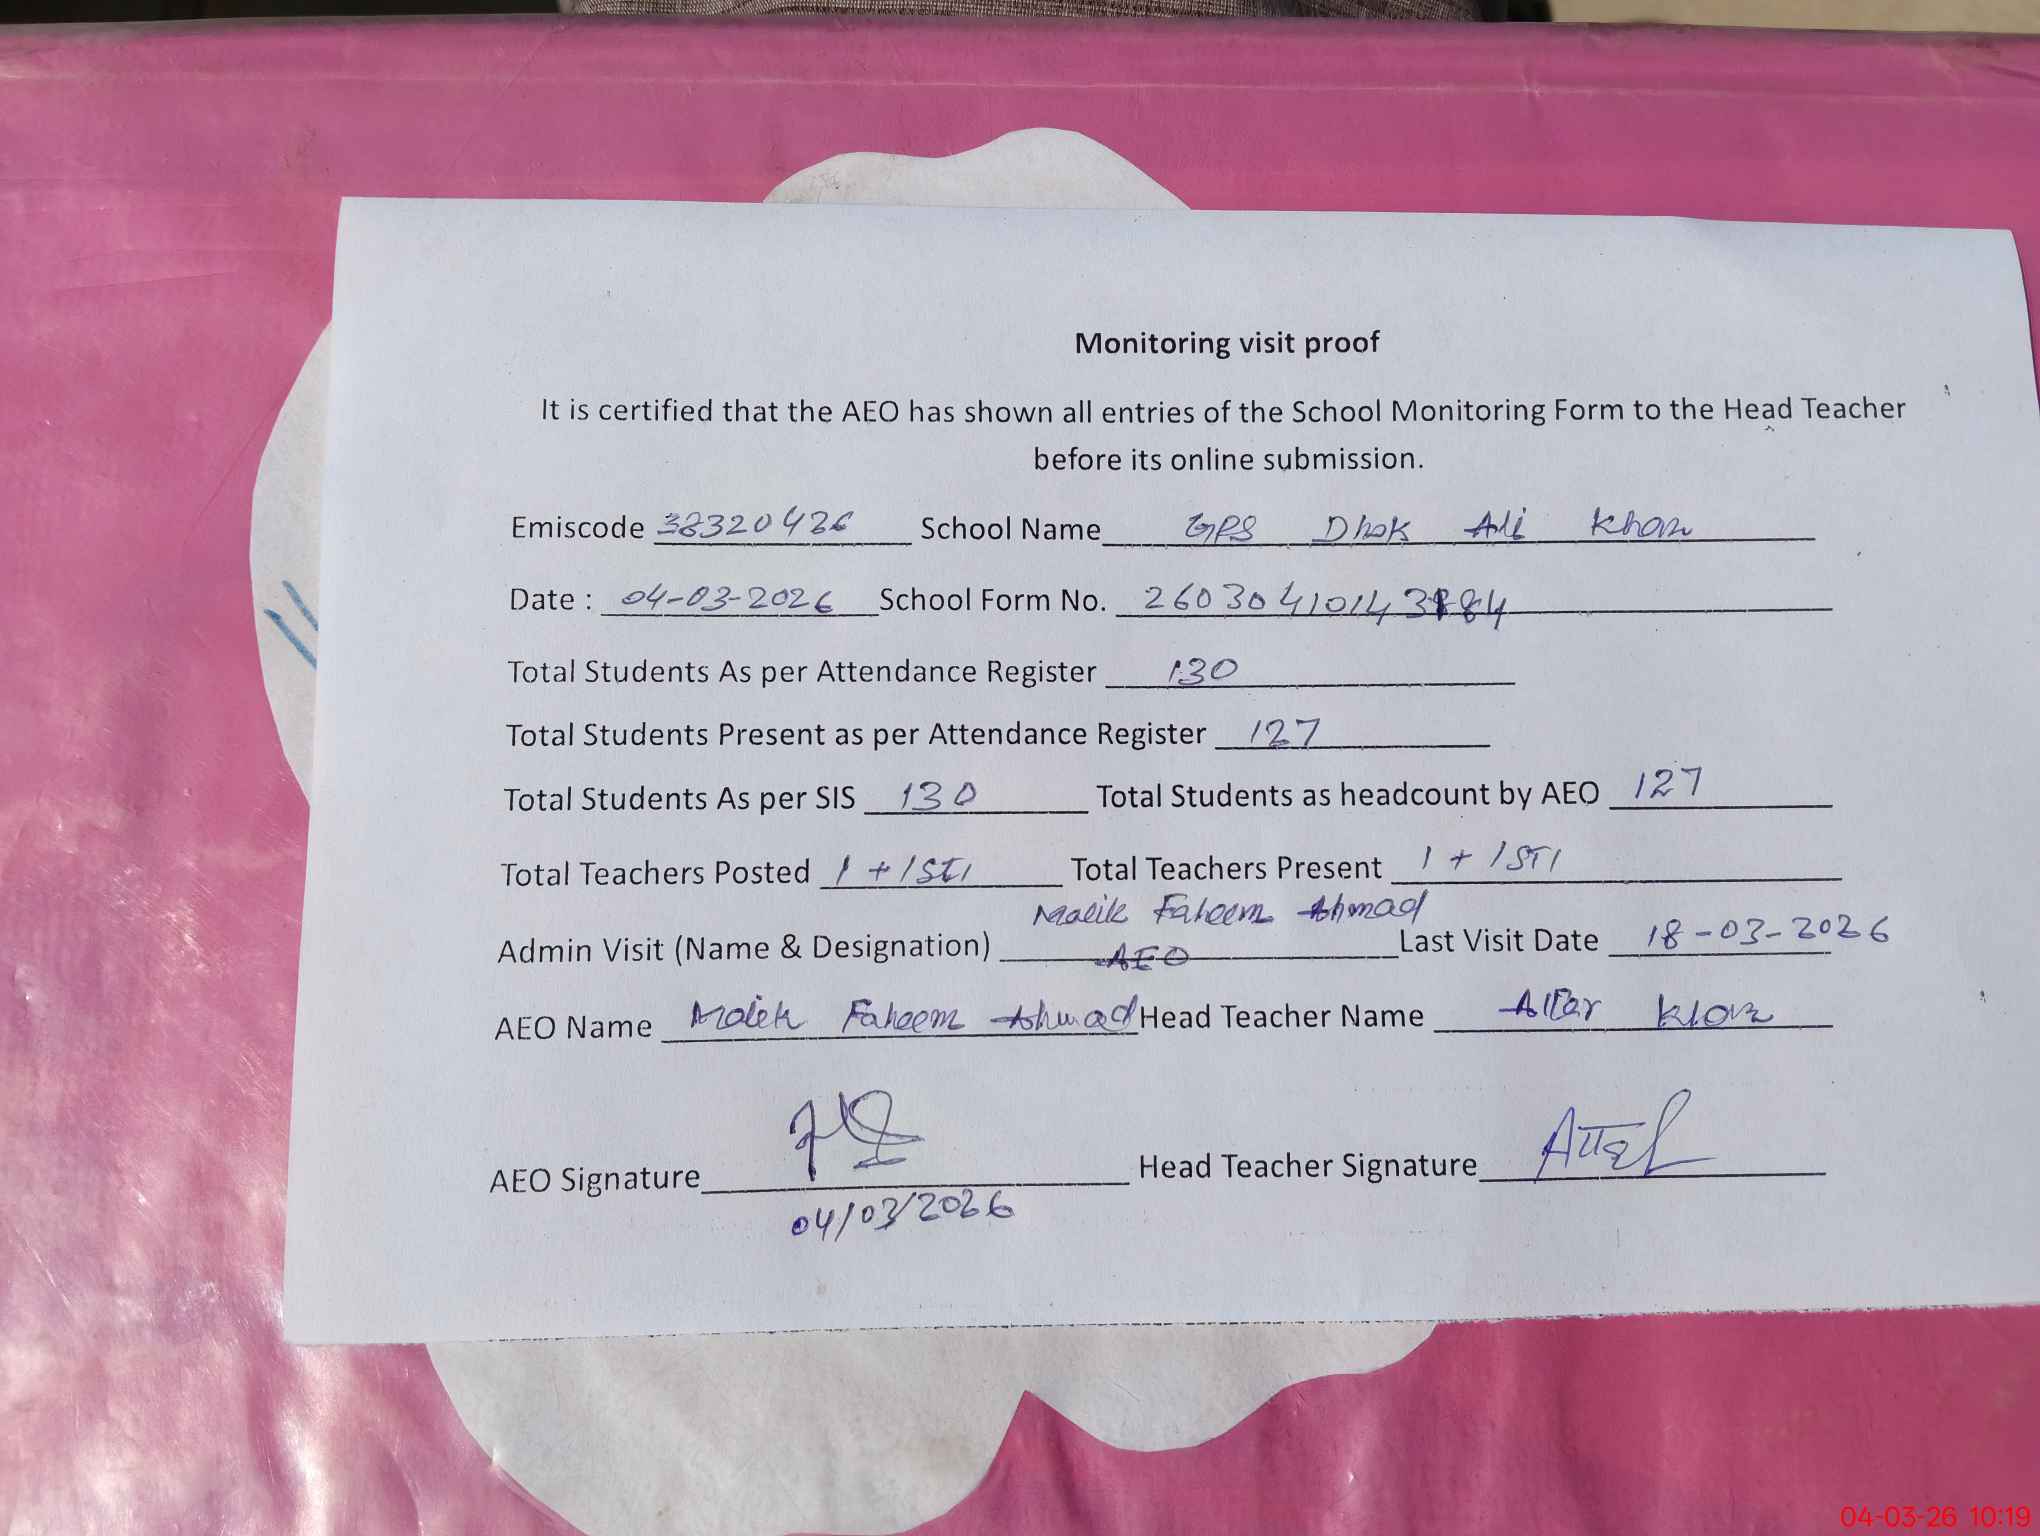 Monitoring visit proof
It is certified that the AEO has shown all entries of the School Monitoring Form to the Head Teacher
before its online submission.
Emiscode 38320426 School Name GPS Dhok Ali Khan
Date : 04-03-2026 School Form No. 2603041014 3884
Total Students As per Attendance Register 130
Total Students Present as per Attendance Register 127
Total Students As per SIS 130 Total Students as headcount by AEO 127
Total Teachers Posted 1 + 1 STI Total Teachers Present 1 + 1 STI
Malik Faheem Ahmad
Admin Visit (Name & Designation) AEO Last Visit Date 18-03-2026
AEO Name Malik Faheem Ahmad Head Teacher Name Khan
AEO Signature Head Teacher Signature
04/03/2026
04-03-26 10:19